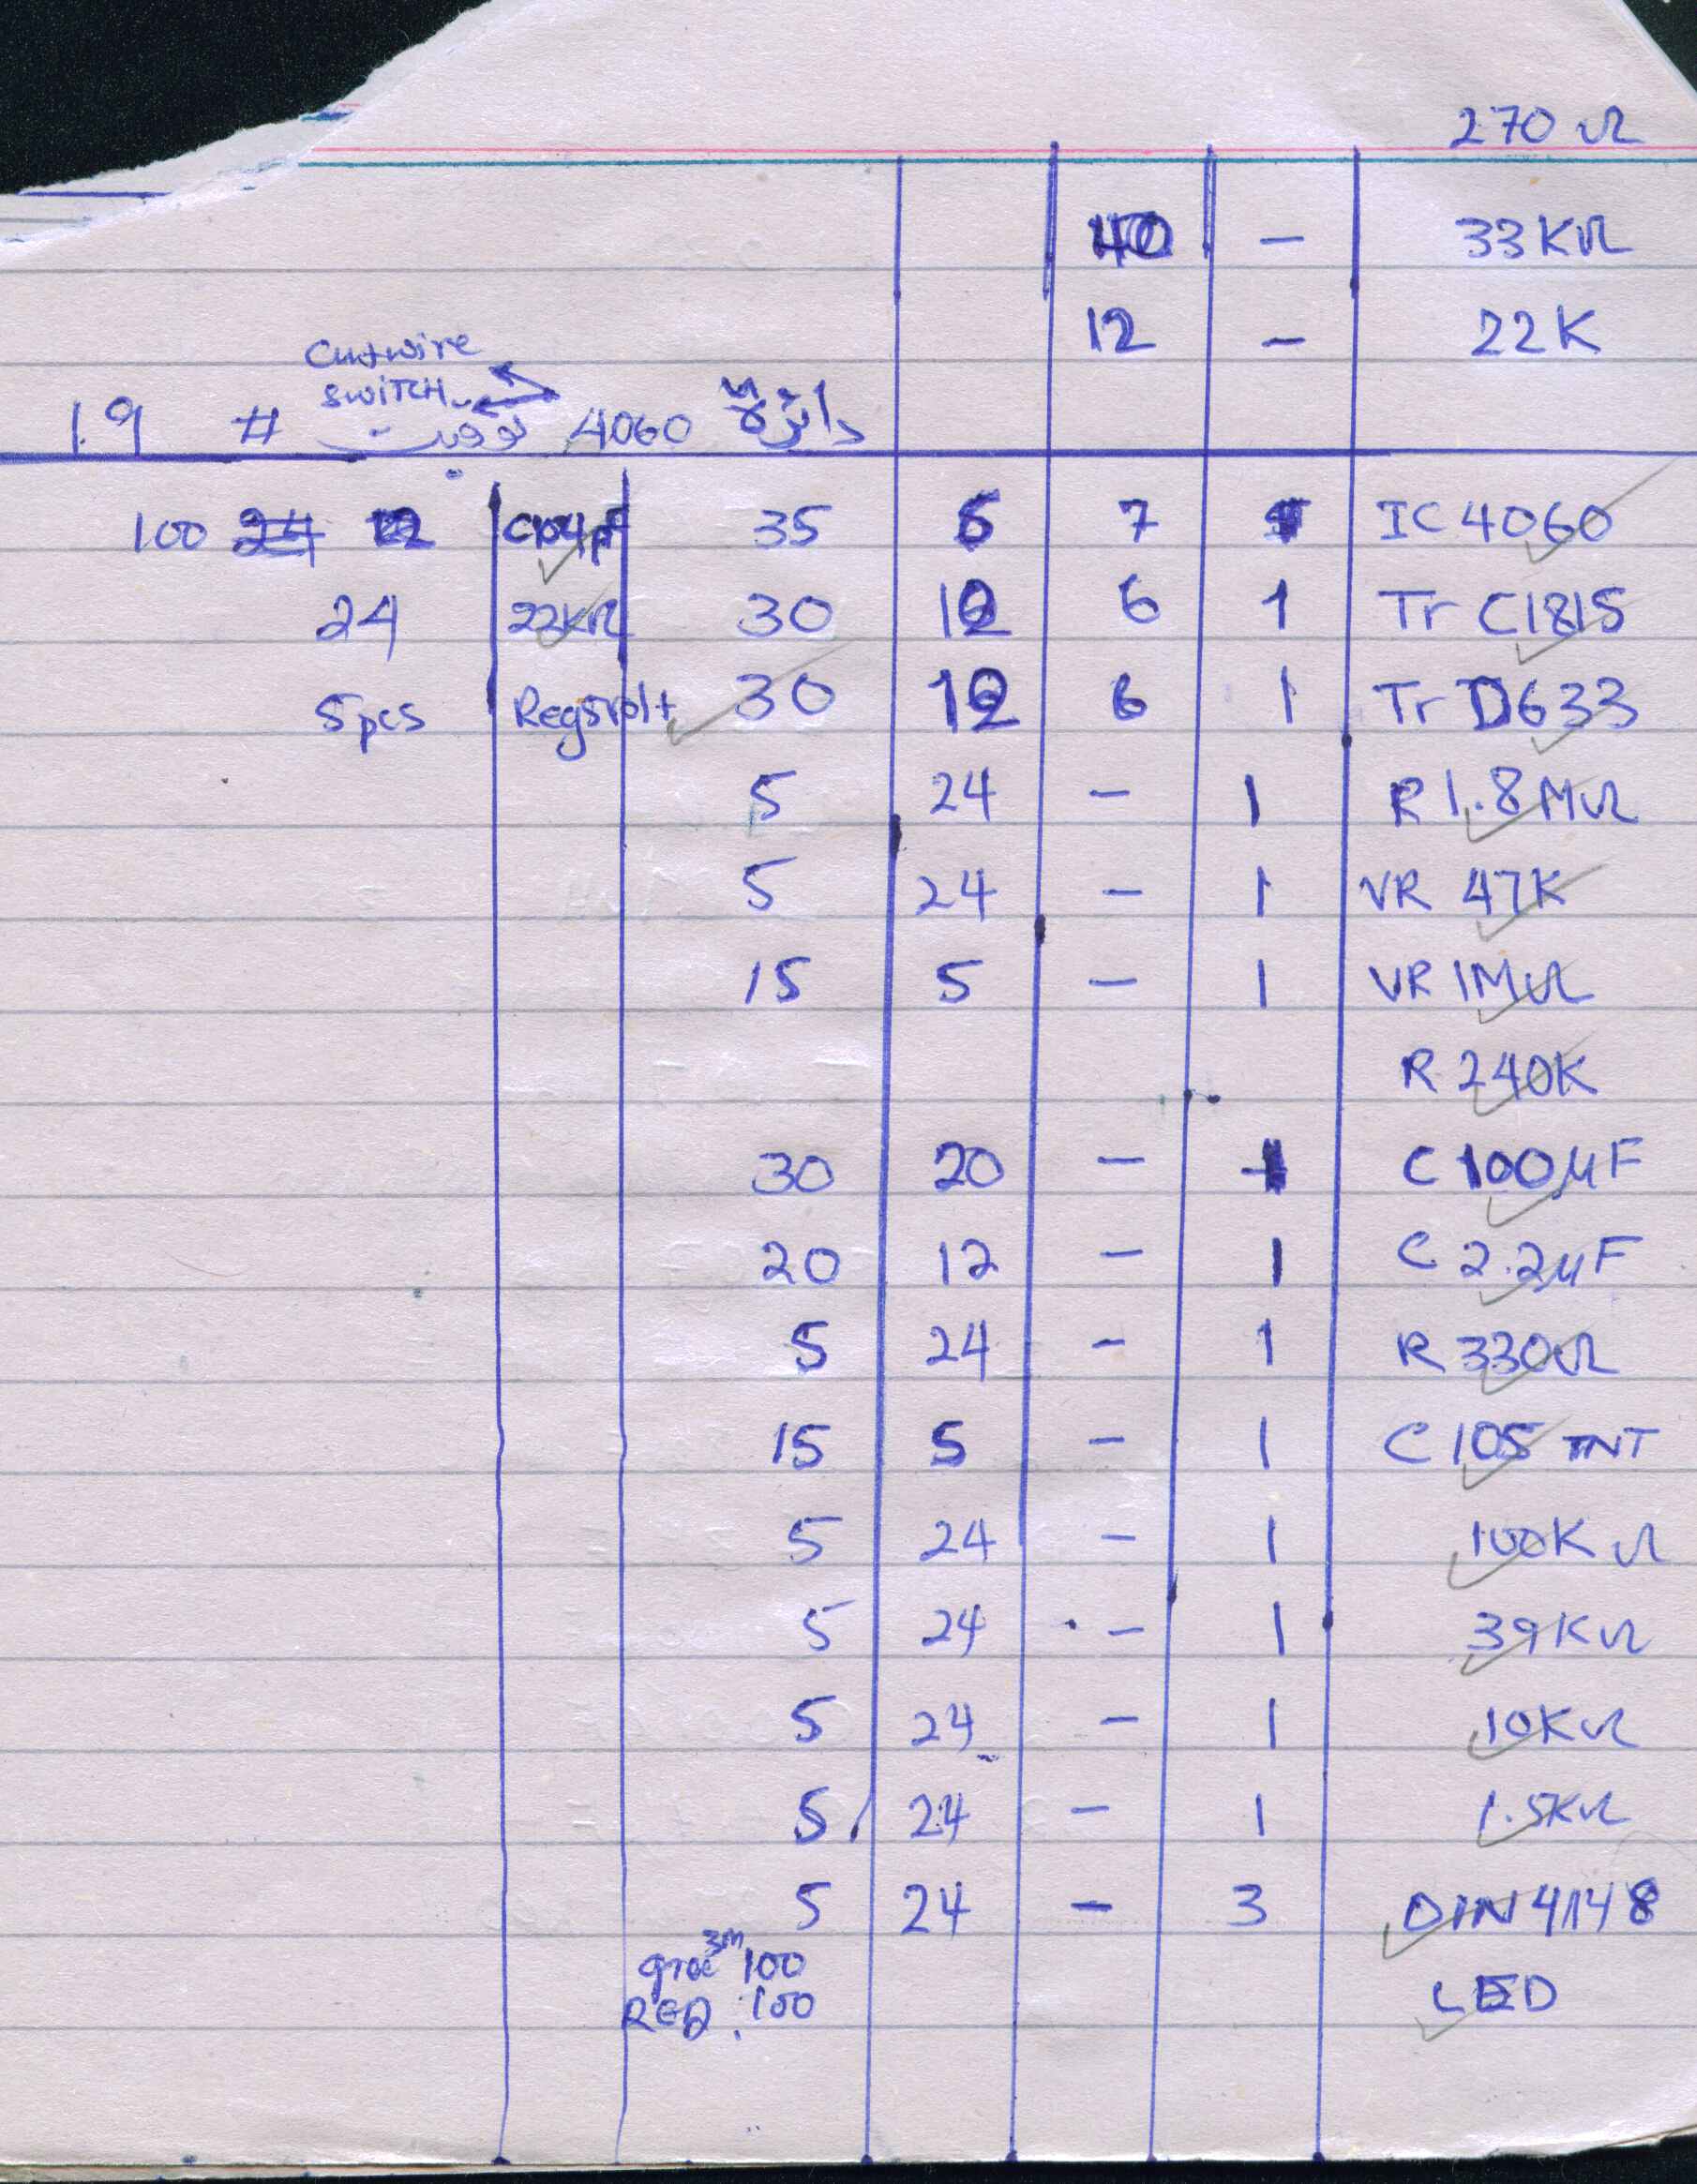 270 Ω
40 - 33KΩ
12 - 22K
Cutwire
SWITCH
1.9 # توقيت 4060 دائرة
100 24 12 C104pF 35 6 7 1 IC 4060
24 22KΩ 30 12 6 1 Tr C1815
5pcs Reg5volt 30 12 6 1 Tr D633
5 24 - 1 R 1.8MΩ
5 24 - 1 VR 47K
15 5 - 1 VR 1MΩ
R 240K
30 20 - 1 C 100µF
20 12 - 1 C 2.2µF
5 24 - 1 R 330Ω
15 5 - 1 C 105 TNT
5 24 - 1 100KΩ
5 24 - 1 39KΩ
5 24 - 1 10KΩ
5 24 - 1 1.5KΩ
5 24 - 3 DIN4148
3m 100
RED 100 LED